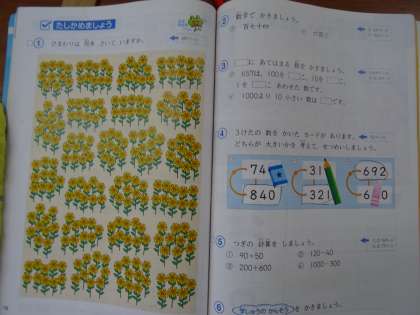 たしかめましょう
① ひまわりは 何本 さいて いますか。
② 数字で かきましょう。
① 百七十四
③ □に あてはまる 数を かきましょう。
① 657は、100を □こ、10を □こ、
1を □こ あわせた 数です。
② 1000より 10 小さい 数は □です。
④ 3けたの 数を かいた カードが あります。
どちらが 大きいかを 考えて、せつめいしましょう。
74
840
31
321
692
6 0
⑤ つぎの 計算を しましょう。
① 90+50
② 120-40
③ 200+600
④ 1000-300
⑥
を かきましょう。